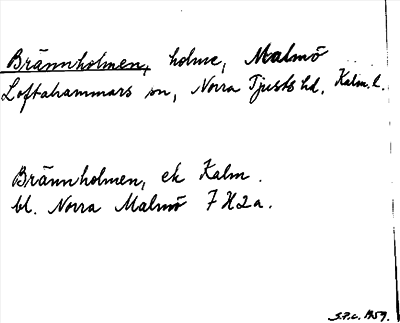 Brännholmen, holme, Malmö
Loftahammars sn, Norra Tjusts hd, Kalm. l.
Brännholmen, ek Kalm.
bl. Norra Malmö 7H2a.
S.P.C. 1959.